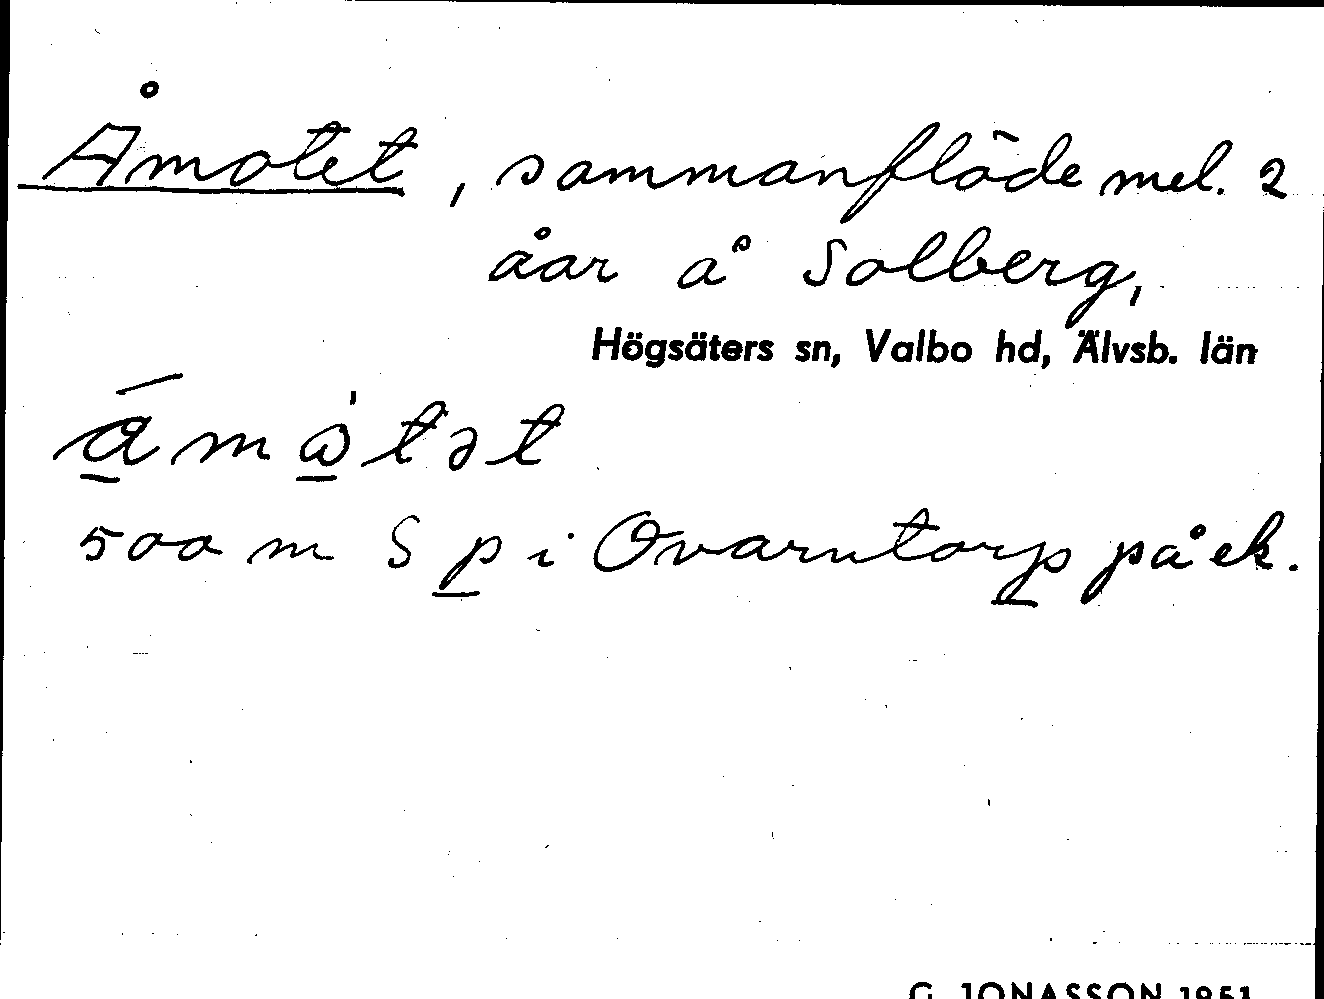 Åmotet, sammanflöde mel. 2
åar å Solberg,
Högsäters sn, Valbo hd, Älvsb. län
åmòtət
500 m S p i Ovarntorp på ek.
G. JONASSON 1951